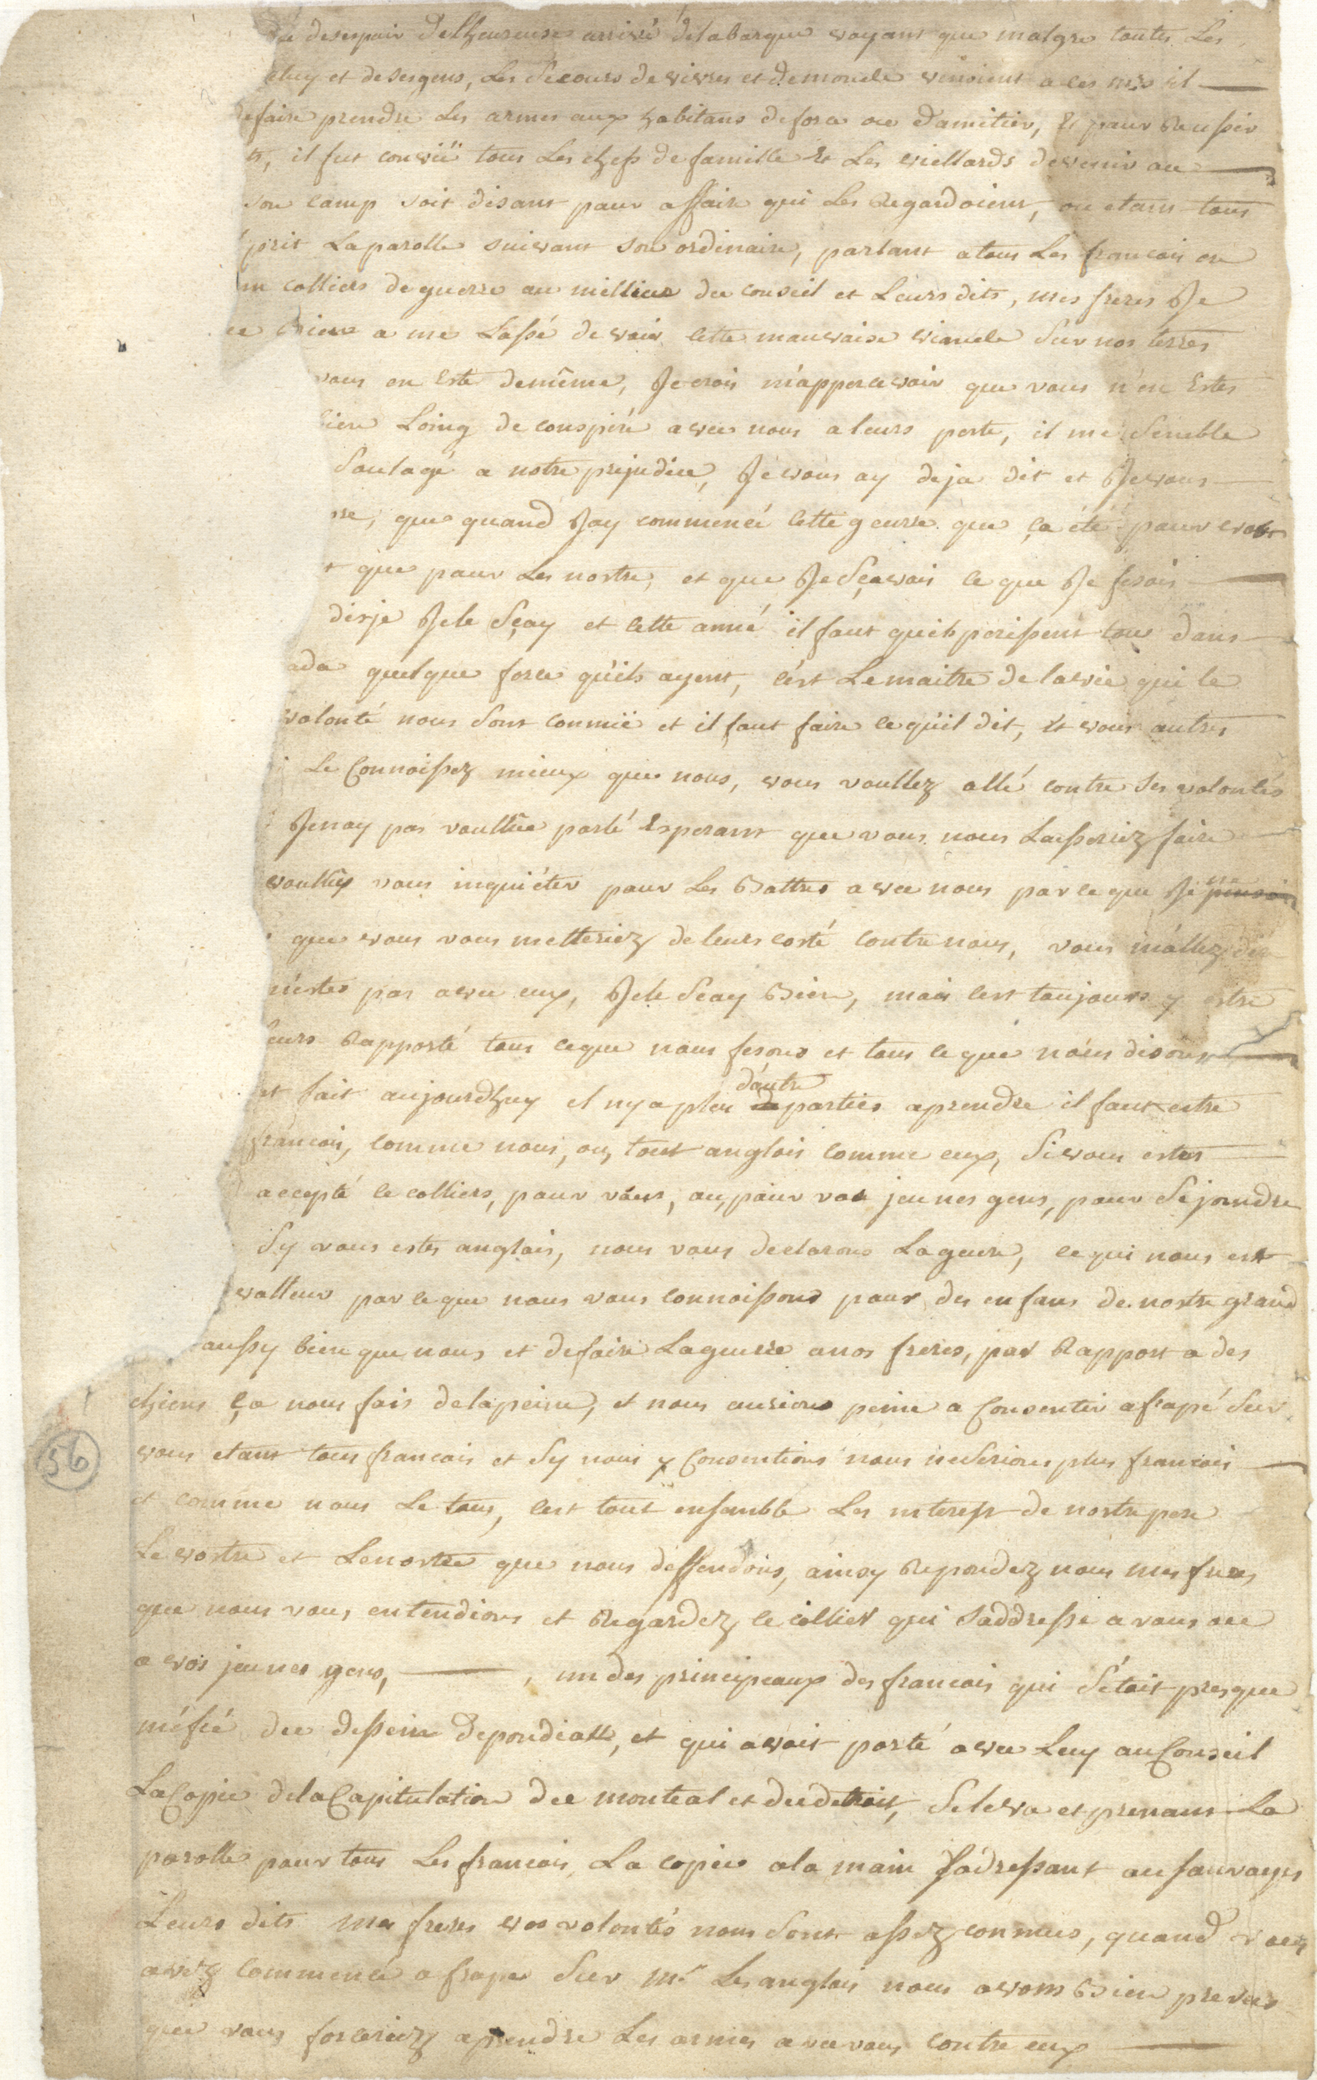 du desespoir de lheureuse arrivé de la barque voyant que malgre toutes Les
luy et de ses gens, Les Secours de vivres et de monde venoient a ces mrs il
de faire prendre Les armes aux habitans de force ou Damitier, Et pour Reussir
il fut convié tous Les chefs de famille Et Les viellards de venir au
son camp soit disant pour affaire qui Les Regardoient, ou etant tous
prit La parolle suivant son ordinaire, parlant a tous Les francois on
un colliers de guerre au millieu du conseil et Leurs dits, mes freres Je
Bien a me Lassé de voir cette mauvaise viande Sur nos terres
vous en Este demême, Je crois m'appercevoir que vous n'en Estes
bien Loing de conspiré avec nous a leurs perte, il me Semble
Soulagé a notre prejudice, Je vous ay deja dit et Je vous
que quand Jay commencé cette geurre que ça été pour vos
que pour Les nostre, et que Je Sçavois ce que Je fesois
disje Je le Sçay et cette anné il faut quils perissent tous dans
quelque force qúils ayent, c'est Le maitre de la vie qui le
volonté nous Sont connuë et il faut faire ce qúil dit, Et vous autres
Le Connoissez mieux que nous, vous voullez allé contre Ses volontés
Je nay pas voullue parlé Esperant que vous nous Laisseriez faire
voullus vous inquiéter pour Les Battres avec nous par ce que Je ne pensois
que vous vous metteriez de leurs costé contre nous, vous m'allez dir
n'estes pas avec eux, Je le Scay Bien, mais c'est toujours y estre
Leurs Rapporté tous ce que nous fesons et tous ce que nous disons
est fait aujourdhuy il ny a plus d'autre parties a prendre il faut estre
francois, comme nous, ou, tout anglois comme eux, Si vous estes
accepté ce colliers, pour vous, ou, pour vos jeunes gens, pour Se joindre
Sy vous estes anglois, nous vous declarons La guerre, ce qui nous est
valleur par ce que nous vous connoissons pour des enfans de nostre grand
aussy bien que nous et de faire La guerre a nos freres, par Rapport a des
chiens ça nous fais de la peine, et nous aurions peine a Consentir a frapé Sur
vous etant tous francois et Sy nous y Consentions nous ne Serions plus francois
et comme nous Le tous, c'est tout ensemble Les interest de nostre pere
Le vostre et Le nostre que nous deffendons, ainsy Repondez nous mes freres
que nous vous entendions et Regardez ce collier qui S'addresse a vous ou
a vos jeunes gens, , un des principeaux des francois qui S'étoit presque
méfié du dessein de pondiak, et qui avoit porté avec Luy au Conseil
La Copie de la Capitulation du montréal et du detroit, Se leva et prenant La
parolle pour tous Les francois La copie a la main S'adressant au sauvages
Leurs dits mes freres vos volontés nous Sont assez connues, quand vous
avez commencé a frape Sur Mrs Les anglois nous avons Bien prevus
que vous forceriez a prendre Les armes avec vous contre eux
56